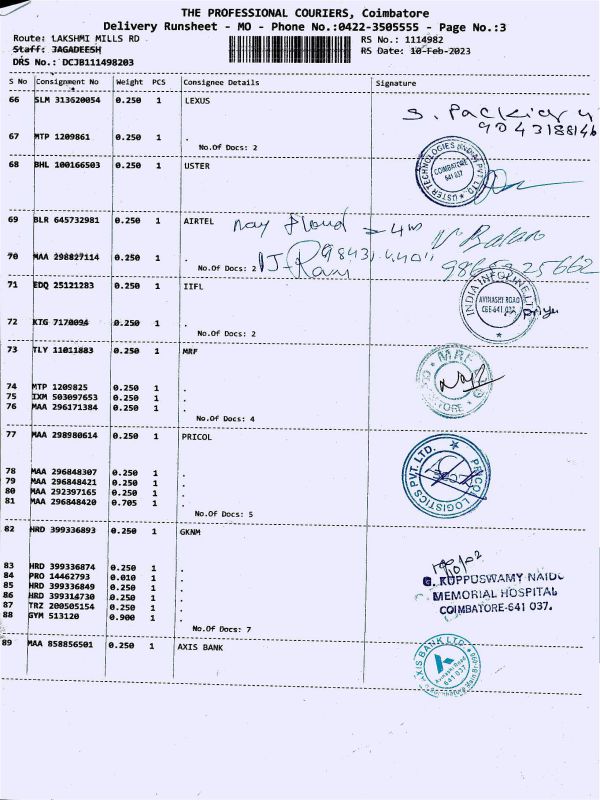 THE PROFESSIONAL COURIERS, Coimbatore
Delivery Runsheet - MO - Phone No.:0422-3505555 - Page No.:3
Route: LAKSHMI MILLS RD RS No.: 1114982
Staff: JAGADEESH RS Date: 10-Feb-2023
DRS No.: DCJB111498203
S No Consignment No Weight PCS Consignee Details Signature
66 SLM 313620054 0.250 1 LEXUS
S. Packiara
67 MTP 1209861 0.250 1 .
No.Of Docs: 2
68 BHL 100166503 0.250 1 USTER
USTER TECHNOLOGIES (INDIA) PVT. LTD.
COIMBATORE
641 037
69 BLR 645732981 0.250 1 AIRTEL
70 MAA 298827114 0.250 1 .
No.Of Docs: 2
71 EDQ 25121283 0.250 1 IIFL
INDIA INFOLINE LTD
AVINASHI ROAD
CBE-641 037
priya
72 KTG 7170094 0.250 1 .
No.Of Docs: 2
73 TLY 11011883 0.250 1 MRF
MRF
74 MTP 1209825 0.250 1 .
75 IXM 503097653 0.250 1 .
76 MAA 296171384 0.250 1 .
No.Of Docs: 4
77 MAA 298980614 0.250 1 PRICOL
PRICOL LOGISTICS PVT. LTD.
78 MAA 296848307 0.250 1 .
79 MAA 296848421 0.250 1 .
80 MAA 292397165 0.250 1 .
81 MAA 296848420 0.705 1 .
No.Of Docs: 5
82 HRD 399336893 0.250 1 GKNM
83 HRD 399336874 0.250 1 .
84 PRO 14462793 0.010 1 .
85 HRD 399336849 0.250 1 .
86 HRD 399314730 0.250 1 .
87 TRZ 200505154 0.250 1 .
88 GYM 513120 0.900 1 .
No.Of Docs: 7
G. KUPPUSWAMY NAIDU
MEMORIAL HOSPITAL
COIMBATORE-641 037.
89 MAA 858856501 0.250 1 AXIS BANK
AXIS BANK LTD.
Avinashi Road
641 037